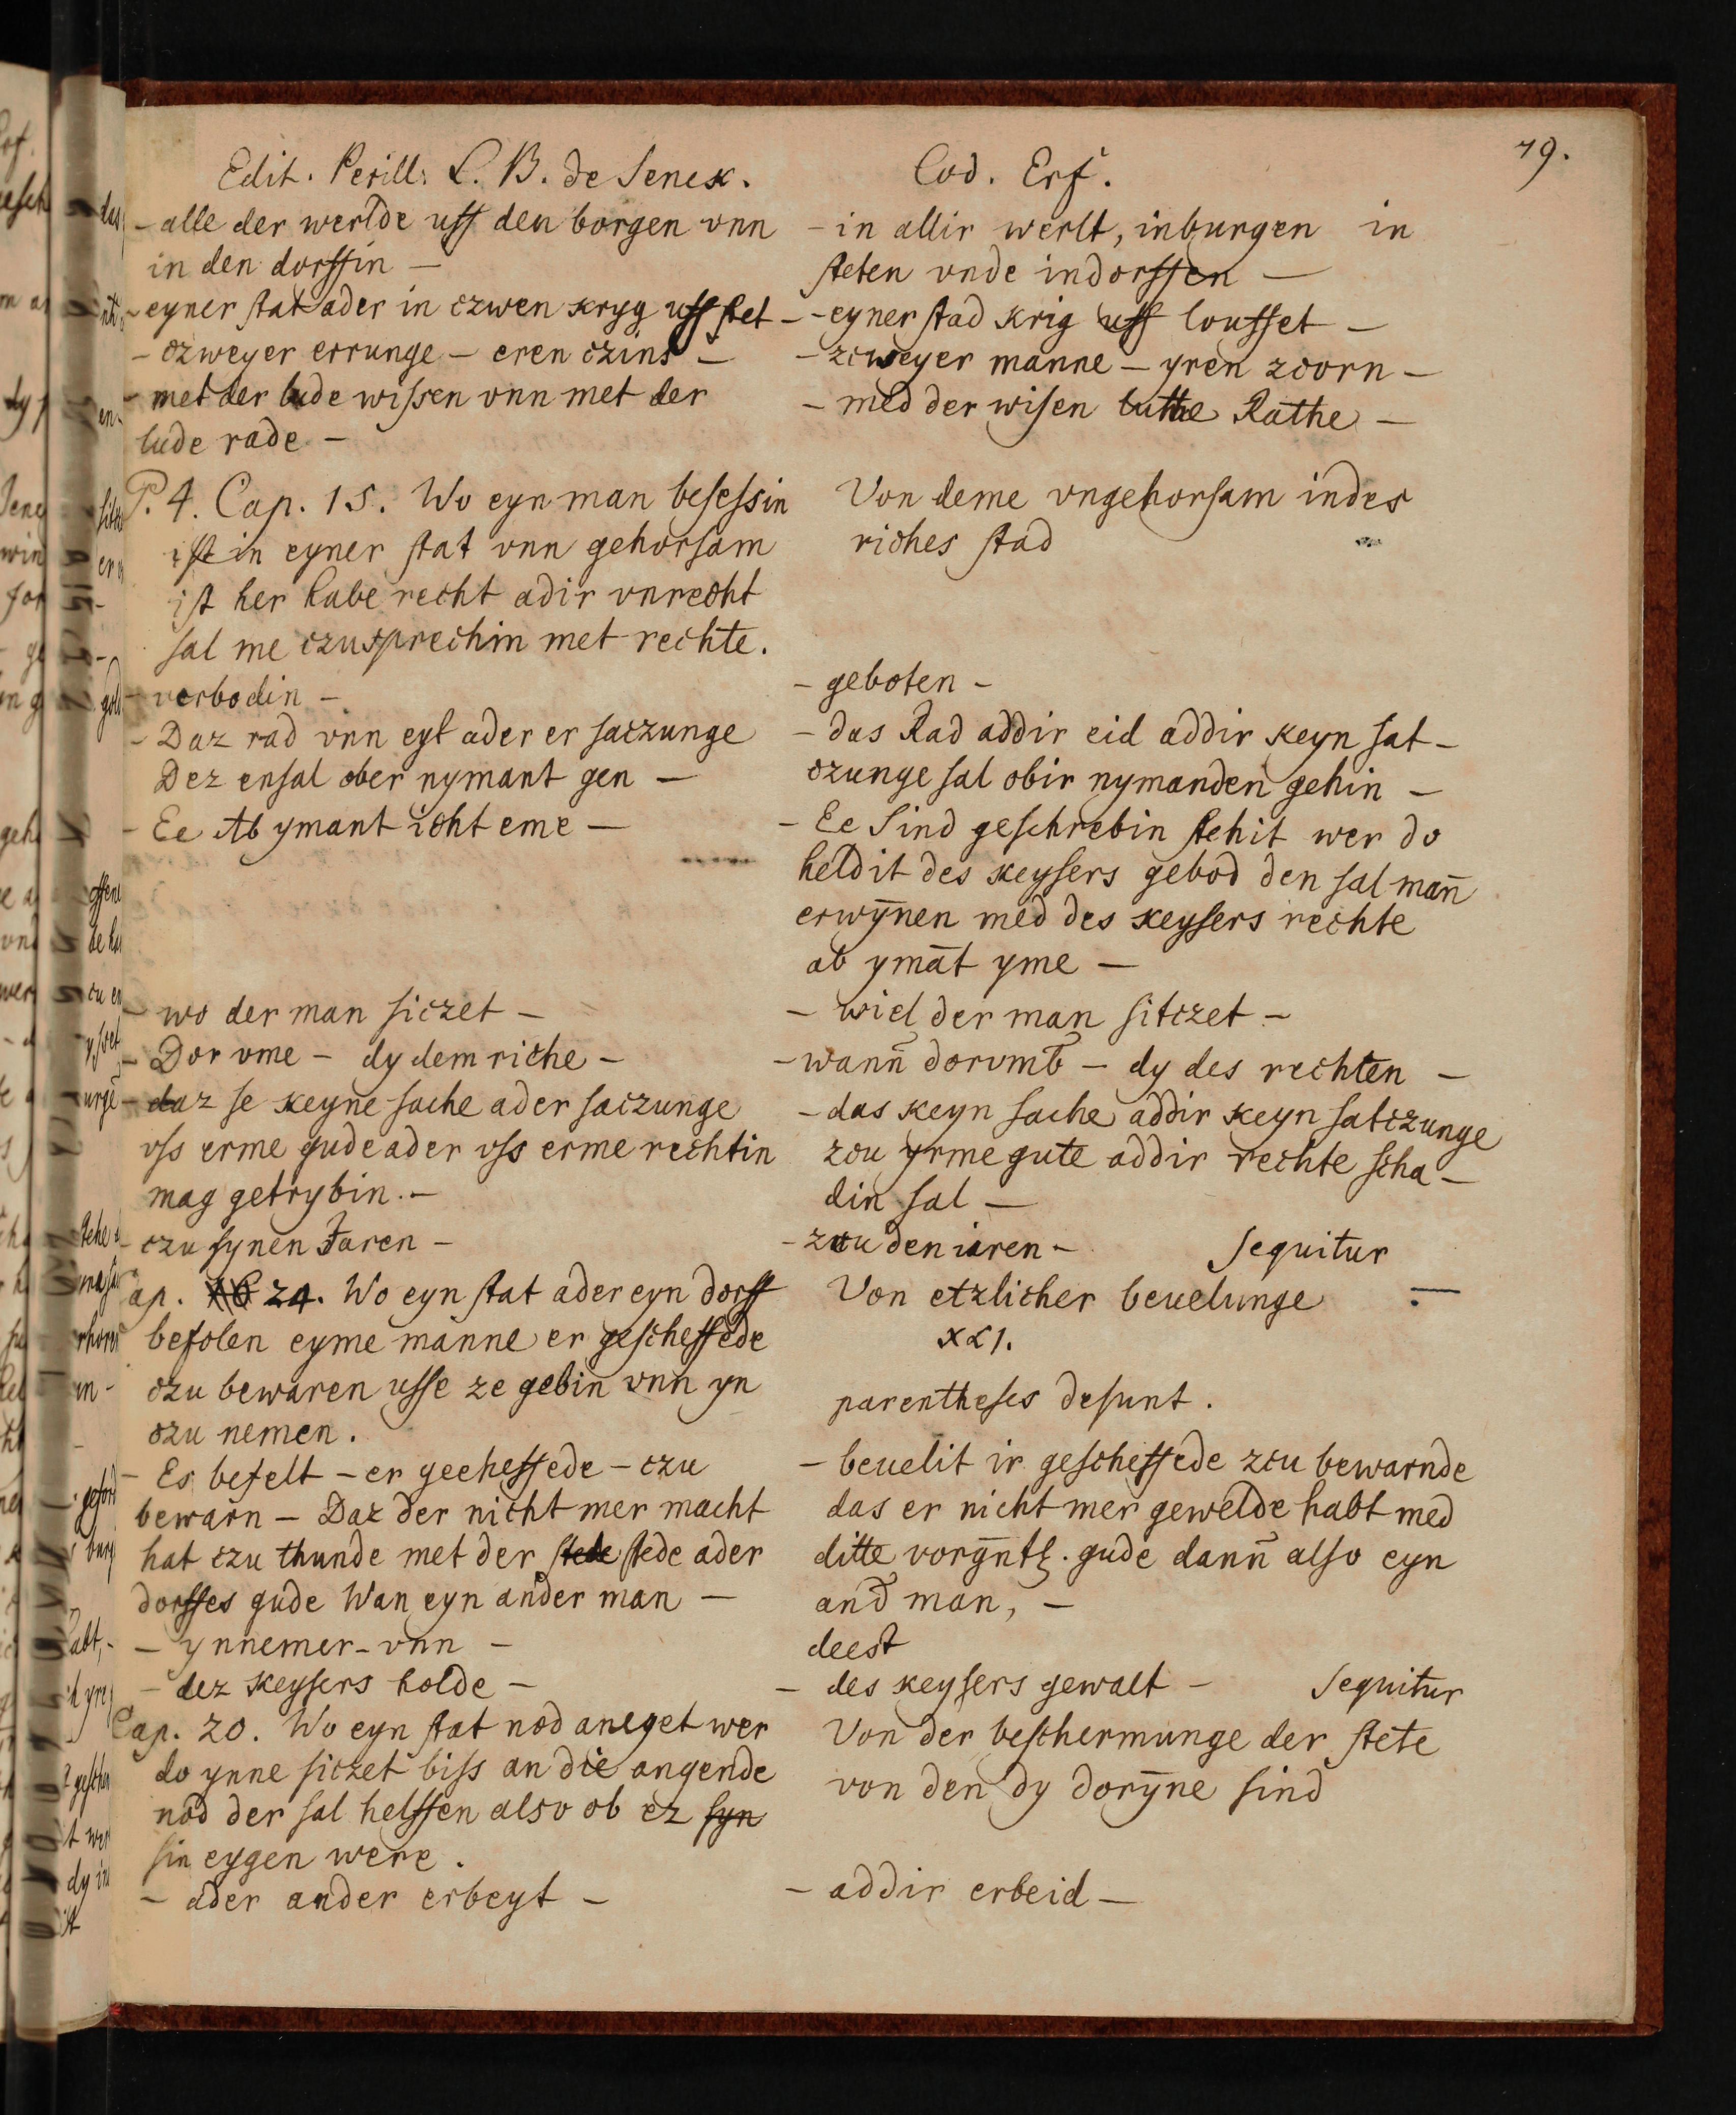 79.
Edit. Perill. L. B. de Senck.
- alle der werlde uff den borgen vnn
in den dorffin -
- eyner stat ader in czwen kryg uff stet -
- czweyer errunge - eren czins -
- met der lude wissen vnn met der
lude rade -
P. 4. Cap. 15. Wo eyn man besessin
ist in eyner stat vnn gehorsam
ist her habe recht adir vnrecht
sal me czusprechin met rechte.
- verbodin -
- Daz rad vnn eyt ader er saczunge
Dez ensal ober nymant gen -
- Ee Ab ymant icht eme -
- wo der man siczet -
- Dor vme - dy dem riche -
- daz se keyne sache ader saczunge
vss erme gude ader vss erme rechtin
mag getrybin. -
- czu synen Jaren -
Cap. 24. Wo eyn stat ader eyn dorff
befolen eyme manne er gescheffede
czu bewaren usse ze gebin vnn yn
czu nemen.
- Es befelt - er geeheffede - czu
bewarn - Daz der nicht mer macht
hat czu thunde met der stede stede ader
dorffes gude Wan eyn ander man -
- ynnemer - vnn -
- dez keysers holde -
Cap. 20. Wo eyn stat nod aneget wer
do ynne siczet biss an die angende
nod der sal helffen also ob ez syn
sin eygen were.
- ader ander erbeyt -
Cod. Erf.
- in allir werlt, inburgen in
steten vnde indorffen -
- eyner stad krig uff louffet -
- zcweyer manne - yren zcorn -
- med der wisen luthe Rathe -
Von deme vngehorsam indes
riches stad
- geboten -
- das Rad addir eid addir keyn sat-
czunge sal obir nymanden gehin -
- Ee Sind geschrebin stehit wer do
heldit des keysers gebod den sal man̄
erwȳnen med des keysers rechte
ab ymāt yme -
- wiel der man sitczet -
- wann̄ dorvmb - dy des rechten -
- das keyn sache addir keyn satczunge
zcu yrme gute addir rechte scha-
din sal -
- zcu den iaren - Sequitur
Von etzlicher beuelunge
XXI.
parentheses desunt.
- beuelit ir gescheffede zcu bewarnde
das er nicht mer gewelde habt med
ditte gude dann̄ also eyn
and man, -
deest
- des keysers gewalt - Sequitur
Von der beschermunge der stete
von den dy dorȳne sind
- addir erbeid -